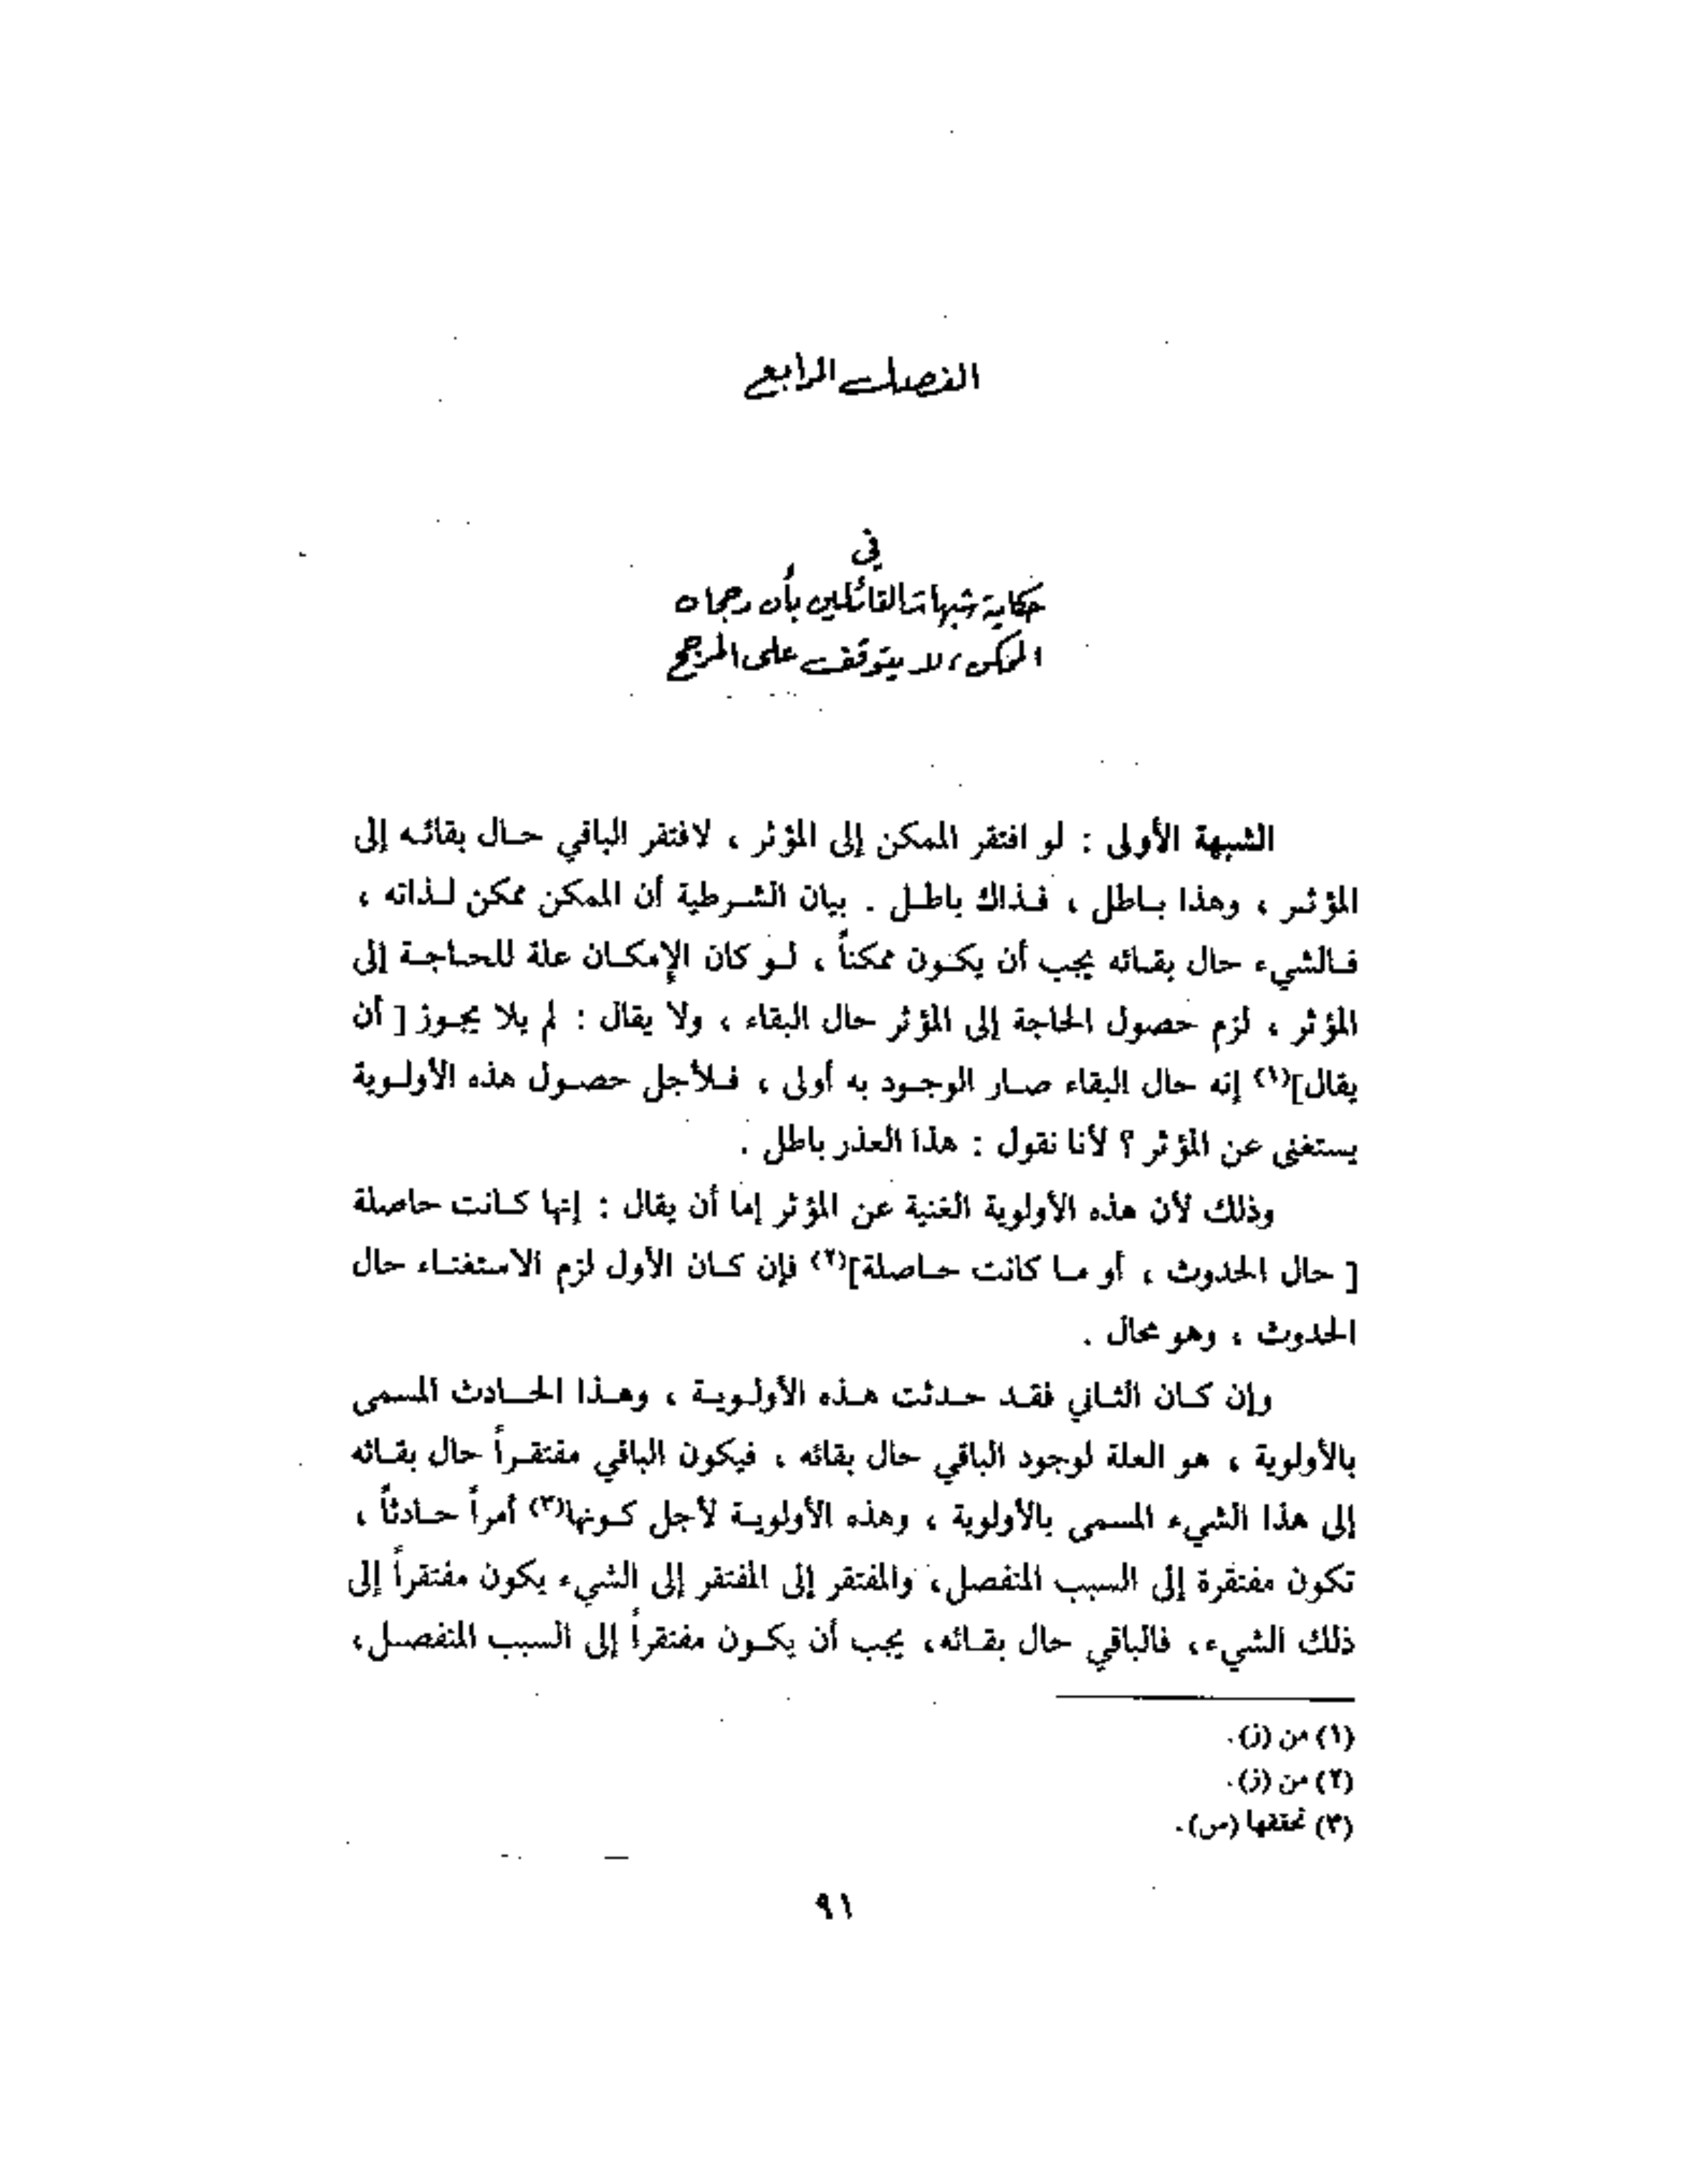 الفصل الرابع
في
حكاية شبهات القائلين بأن رجحان
الممكن، لا يتوقف على المرجح
الشبهة الأولى : لو افتقر الممكن إلى المؤثر ، لافتقر الباقي حال بقائه إلى
المؤثر ، وهذا باطل ، فذاك باطل . بيان الشرطية أن الممكن ممكن لذاته ،
فالشيء حال بقائه يجب أن يكون ممكناً ، لو كان الإمكان علة للحاجة إلى
المؤثر ، لزم حصول الحاجة إلى المؤثر حال البقاء ، ولا يقال : لم يلا يجوز [ أن
يقال](١) إنه حال البقاء صار الوجود به أولى ، فلأجل حصول هذه الأولوية
يستغنى عن المؤثر ؟ لأنا نقول : هذا العذر باطل .
وذلك لأن هذه الأولوية الغنية عن المؤثر إما أن يقال : إنها كانت حاصلة
[ حال الحدوث ، أو ما كانت حاصلة](٢) فإن كان الأول لزم الاستغناء حال
الحدوث ، وهو محال .
وإن كان الثاني فقد حدثت هذه الأولوية ، وهذا الحادث المسمى
بالأولوية ، هو العلة لوجود الباقي حال بقائه ، فيكون الباقي مفتقراً حال بقائه
إلى هذا الشيء المسمى بالأولوية ، وهذه الأولوية لأجل كونها(٣) أمراً حادثاً ،
تكون مفتقرة إلى السبب المنفصل، والمفتقر إلى المفتقر إلى الشيء يكون مفتقراً إلى
ذلك الشيء، فالباقي حال بقائه، يجب أن يكون مفتقراً إلى السبب المنفصل،
(١) من (ز).
(٢) من (ز).
(٣) تحققها (س).
٩١